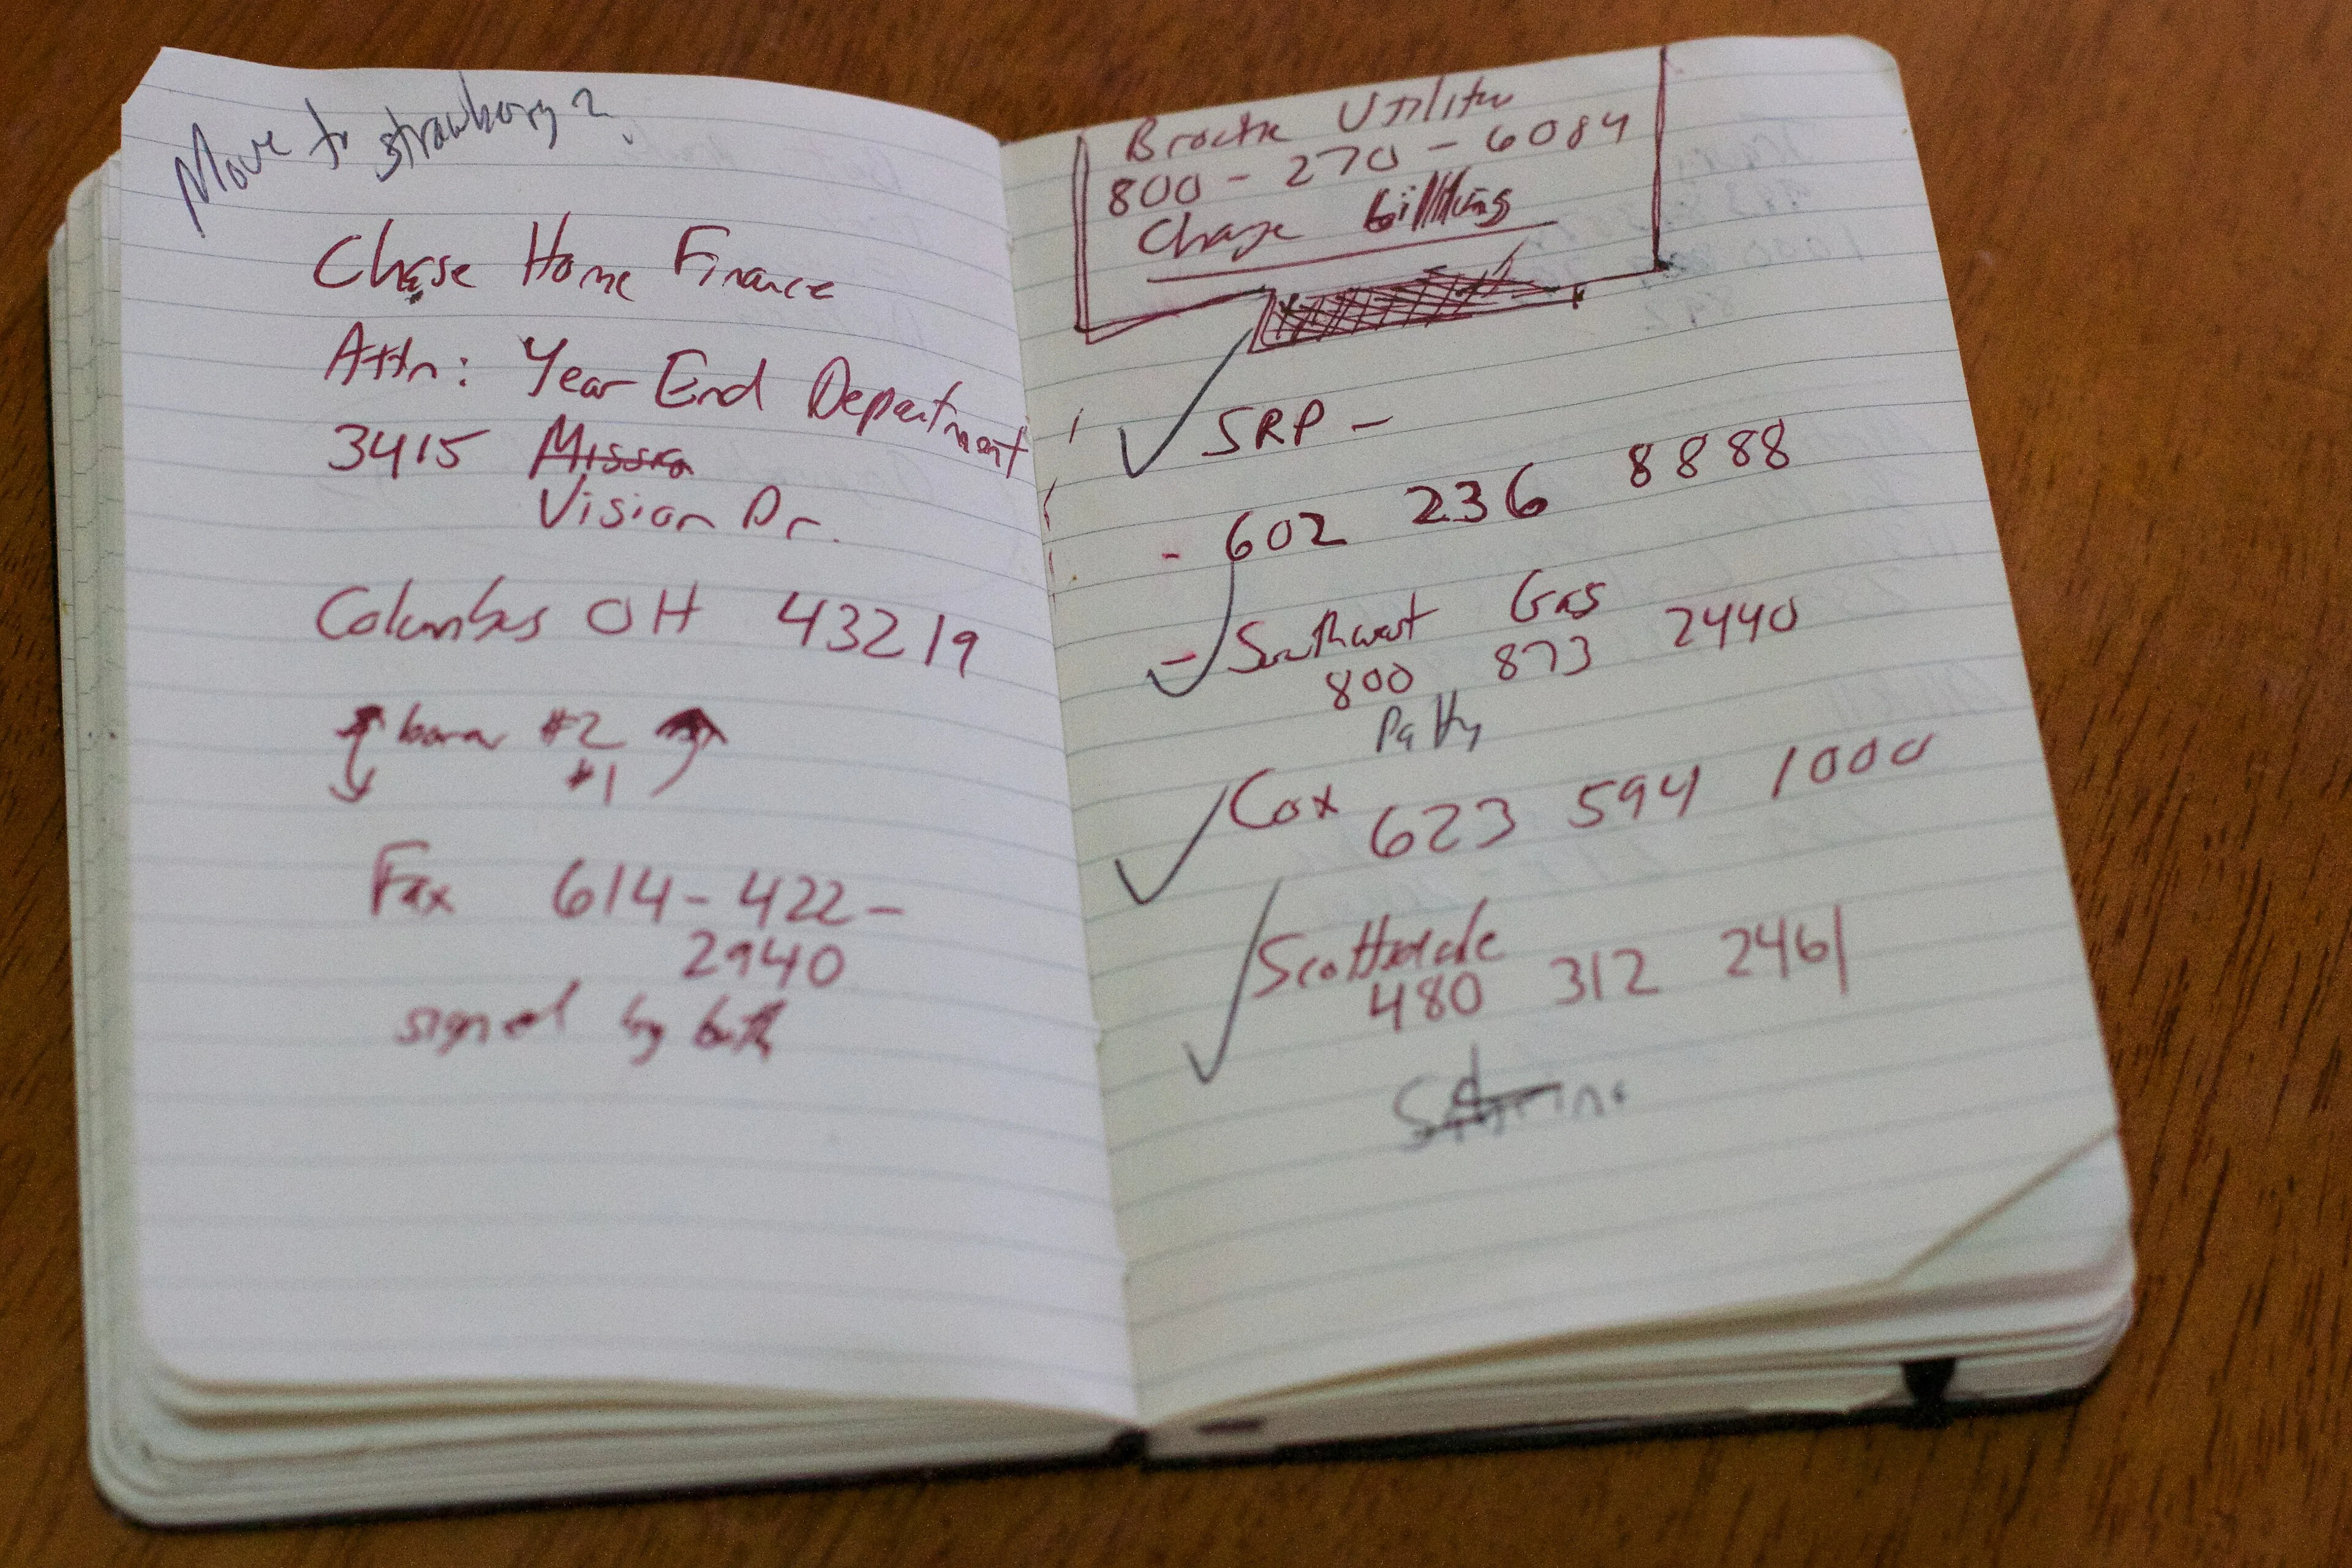 Move to strawberry?
Chase Home Finance
Attn: Year End Department
3415 Missio
Vision Dr.
Columbus OH 43219
#2
#1
Fax 614-422-
2940
signed by both
Utility
800-270-6084
Change billing
SRP -
- 602 236 8888
- Southwest Gas
800 873 2440
Patty
Cox
623 594 1000
Scottsdale
480 312 2461